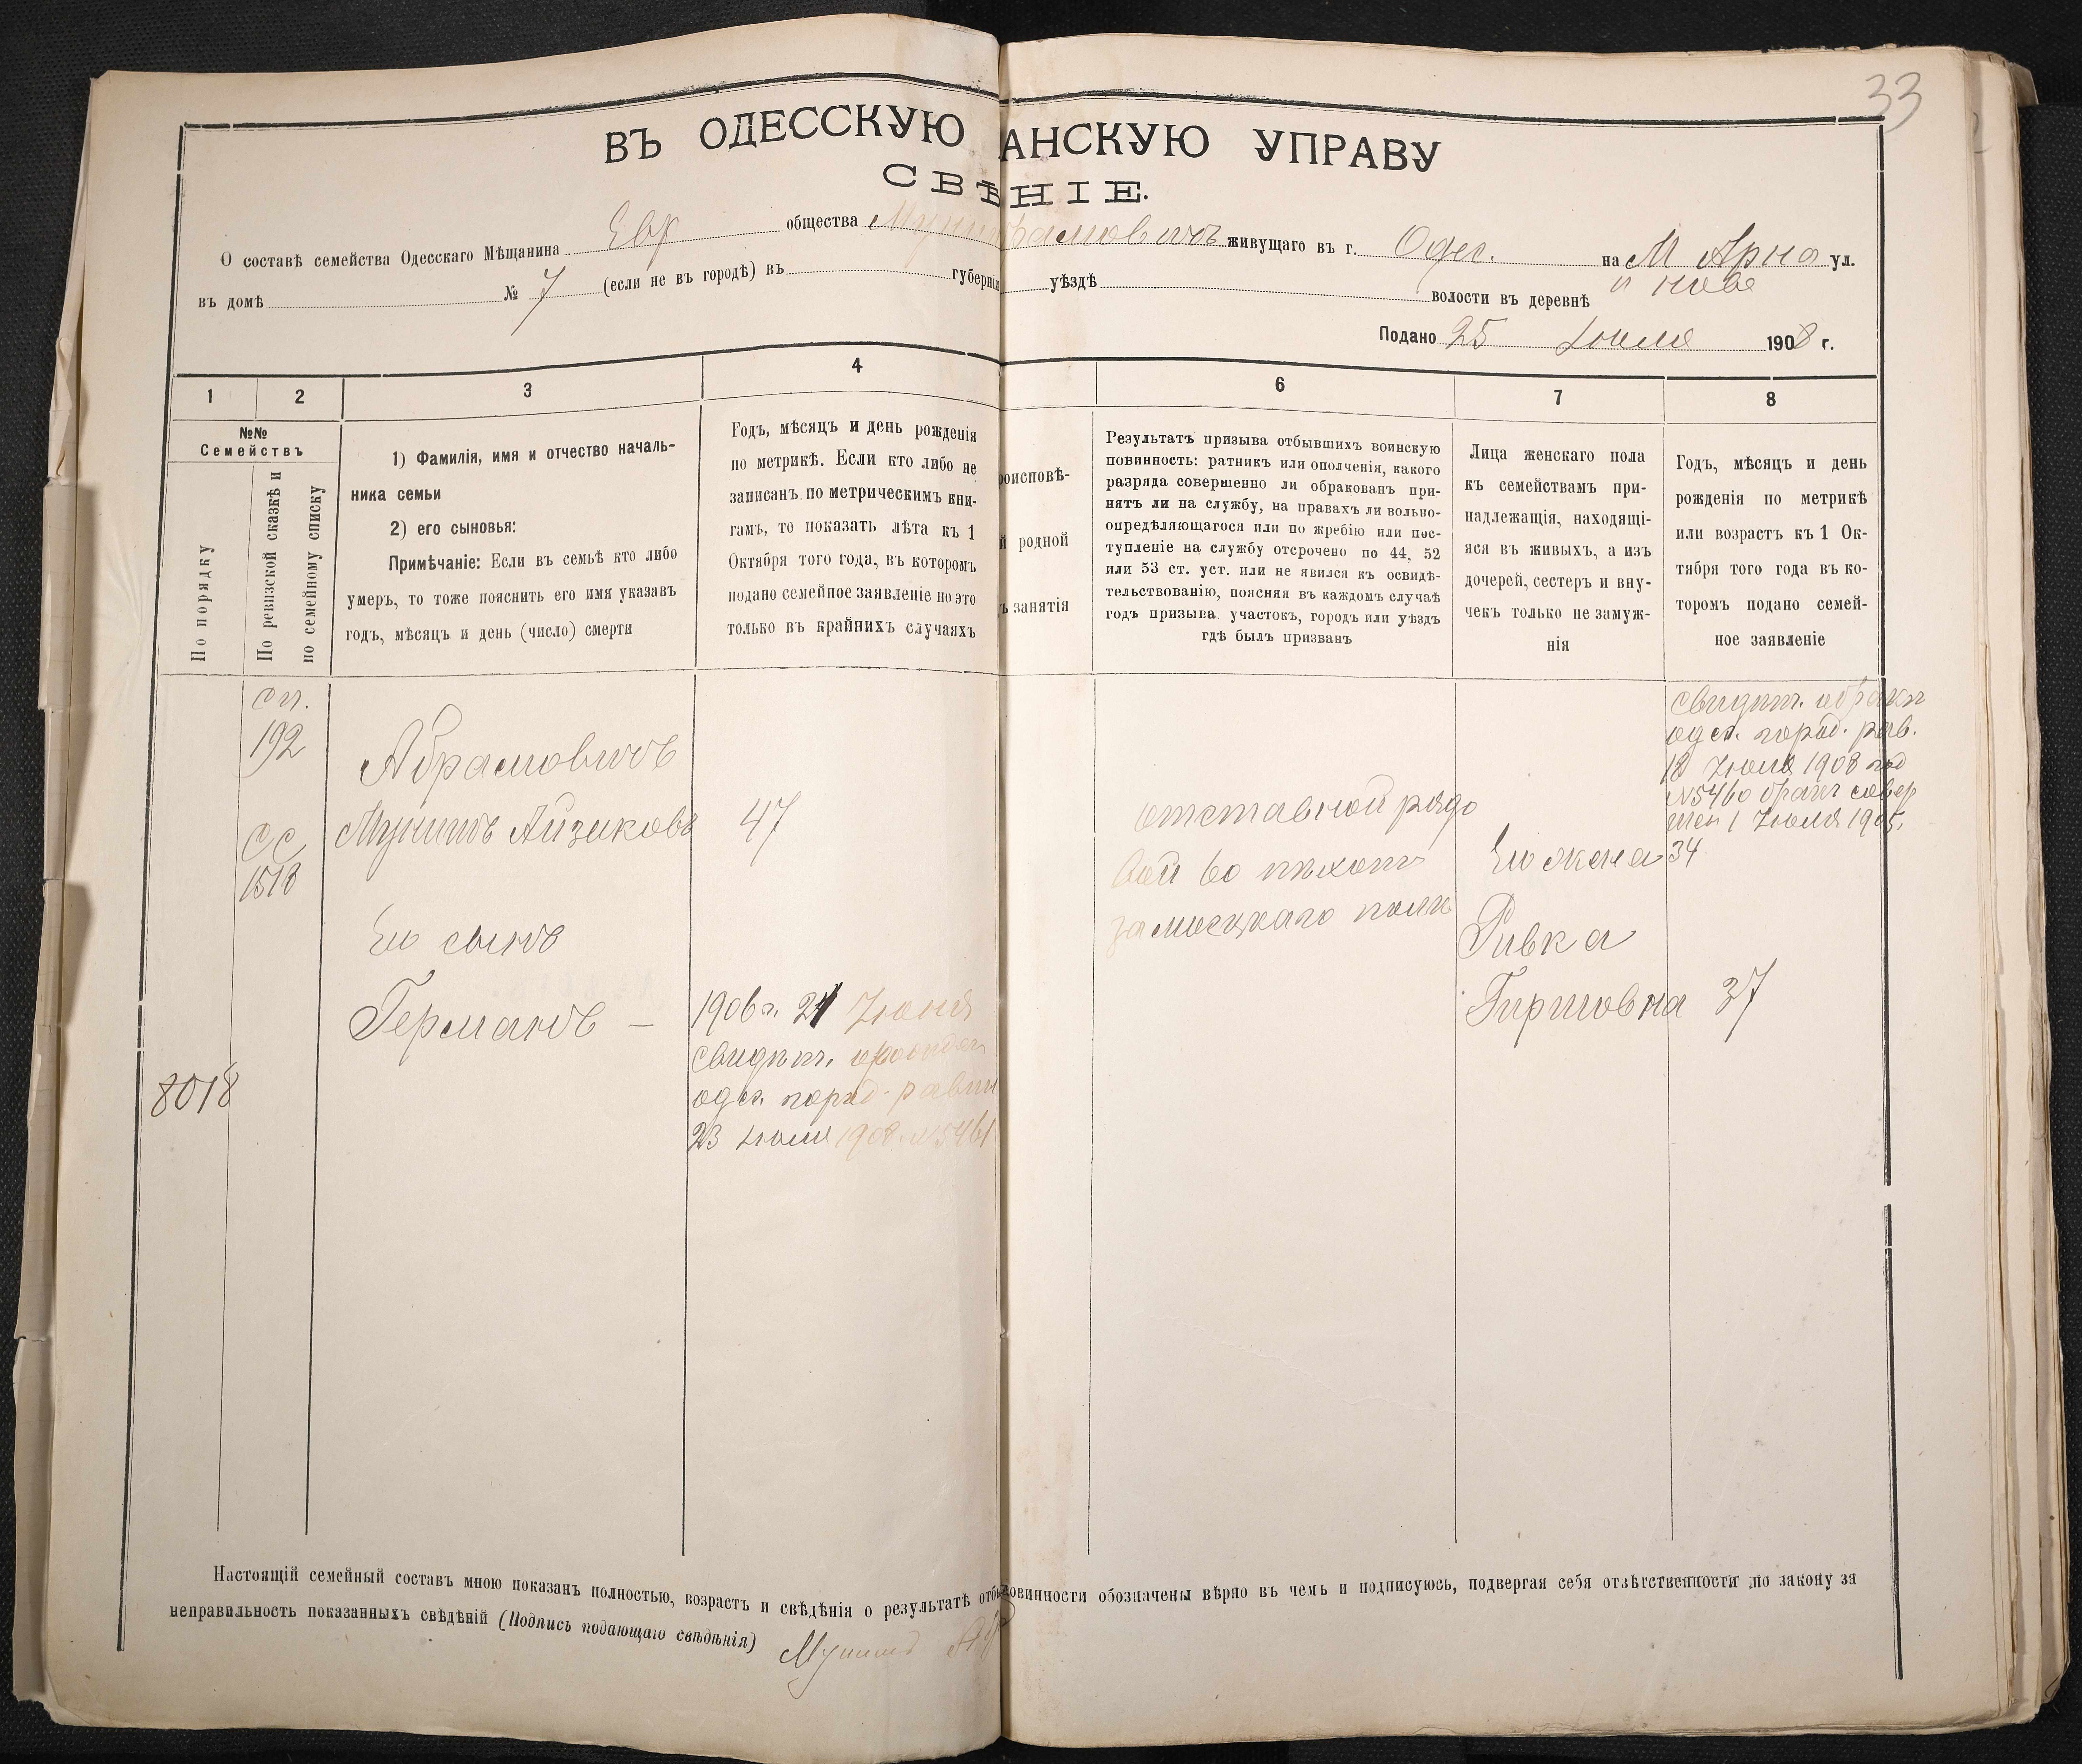 33
ВЪ ОДЕССКУЮ АНСКУЮ УПРАВУ
СВѢНІЕ.
О составѣ семейства Одесскаго Мѣщанина Евр общества живущаго въ г. Одес. на М Арна ул.
въ домѣ № 7 (если не въ городѣ) въ губерніи уѣздѣ волости въ деревнѣ
Подано 25 Іюля 1908 г.
1 2 3 4 6 7 8
№№
Семействъ
По порядку
По ревизской сказкѣ и
по семейному списку
1) Фамилія, имя и отчество началь-
ника семьи
2) его сыновья:
Примѣчаніе: Если въ семьѣ кто либо
умеръ, то тоже пояснить его имя указавъ
годъ, мѣсяцъ и день (число) смерти
Годъ, мѣсяцъ и день рожденія
по метрикѣ. Если кто либо не
записанъ по метрическимъ кни-
гамъ, то показать лѣта къ 1
Октября того года, въ которомъ
подано семейное заявленіе но это
только въ крайнихъ случаяхъ
роисповѣ-
й родной
ъ занятія
Результатъ призыва отбывшихъ воинскую
повинность: ратникъ или ополченія, какого
разряда совершенно ли обракованъ при-
нятъ ли на службу, на правахъ ли вольно-
опредѣляющагося или по жребію или пос-
тупленіе на службу отсрочено по 44, 52
или 53 ст. уст. или не явился къ освидѣ-
тельствованію, поясняя въ каждомъ случаѣ
годъ призыва участокъ, городъ или уѣздъ
гдѣ былъ призванъ
Лица женскаго пола
къ семействамъ при-
надлежащія, находящі-
яся въ живыхъ, а изъ
дочерей, сестеръ и вну-
чекъ только не замуж-
нія
Годъ, мѣсяцъ и день
рожденія по метрикѣ
или возрастъ къ 1 Ок-
тября того года въ ко-
торомъ подано семей-
ное заявленіе
8018
сп.
192
сс
1518
Абрамовичъ
Мунишъ Айзиковъ
Его сынъ
Германъ —
47
1906 г. 24 Іюня
свидѣт. о рожден
одес. город. равин
23 Іюля 1908 №5461
отставной рядо
вой 60 пѣхотн
замосцкаго полк
Его жена
Ривка
Гиршовна
свидѣт. о бракѣ
одес. город. рав.
18 Іюля 1908 год
№5460 бракъ совер
шен 1 Іюля 1905.
34
37
Настоящій семейный составъ мною показанъ полностью, возрастъ и свѣдѣнія о результатѣ отбы овинности обозначены вѣрно въ чемъ и подписуюсь, подвергая себя отвѣтственности по закону за
неправильность показанныхъ свѣдѣній (Подпись подающаго свѣдѣнія) Мунишъ